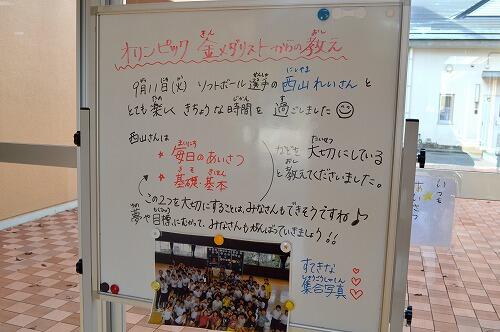 オリンピック 金メダリストからの教え
9月11日(火) ソフトボール選手の西山れいさんと
とても楽しく きちょうな時間を 過ごしました
西山さんは
★ 毎日のあいさつ
★ 基礎・基本
などを 大切にしている
と教えてくださいました。
この2つを大切にすることは、みなさんもできそうですね♪
夢や目標にむかって、みなさんもがんばっていきましょう!!
すてきな
集合写真
いつも